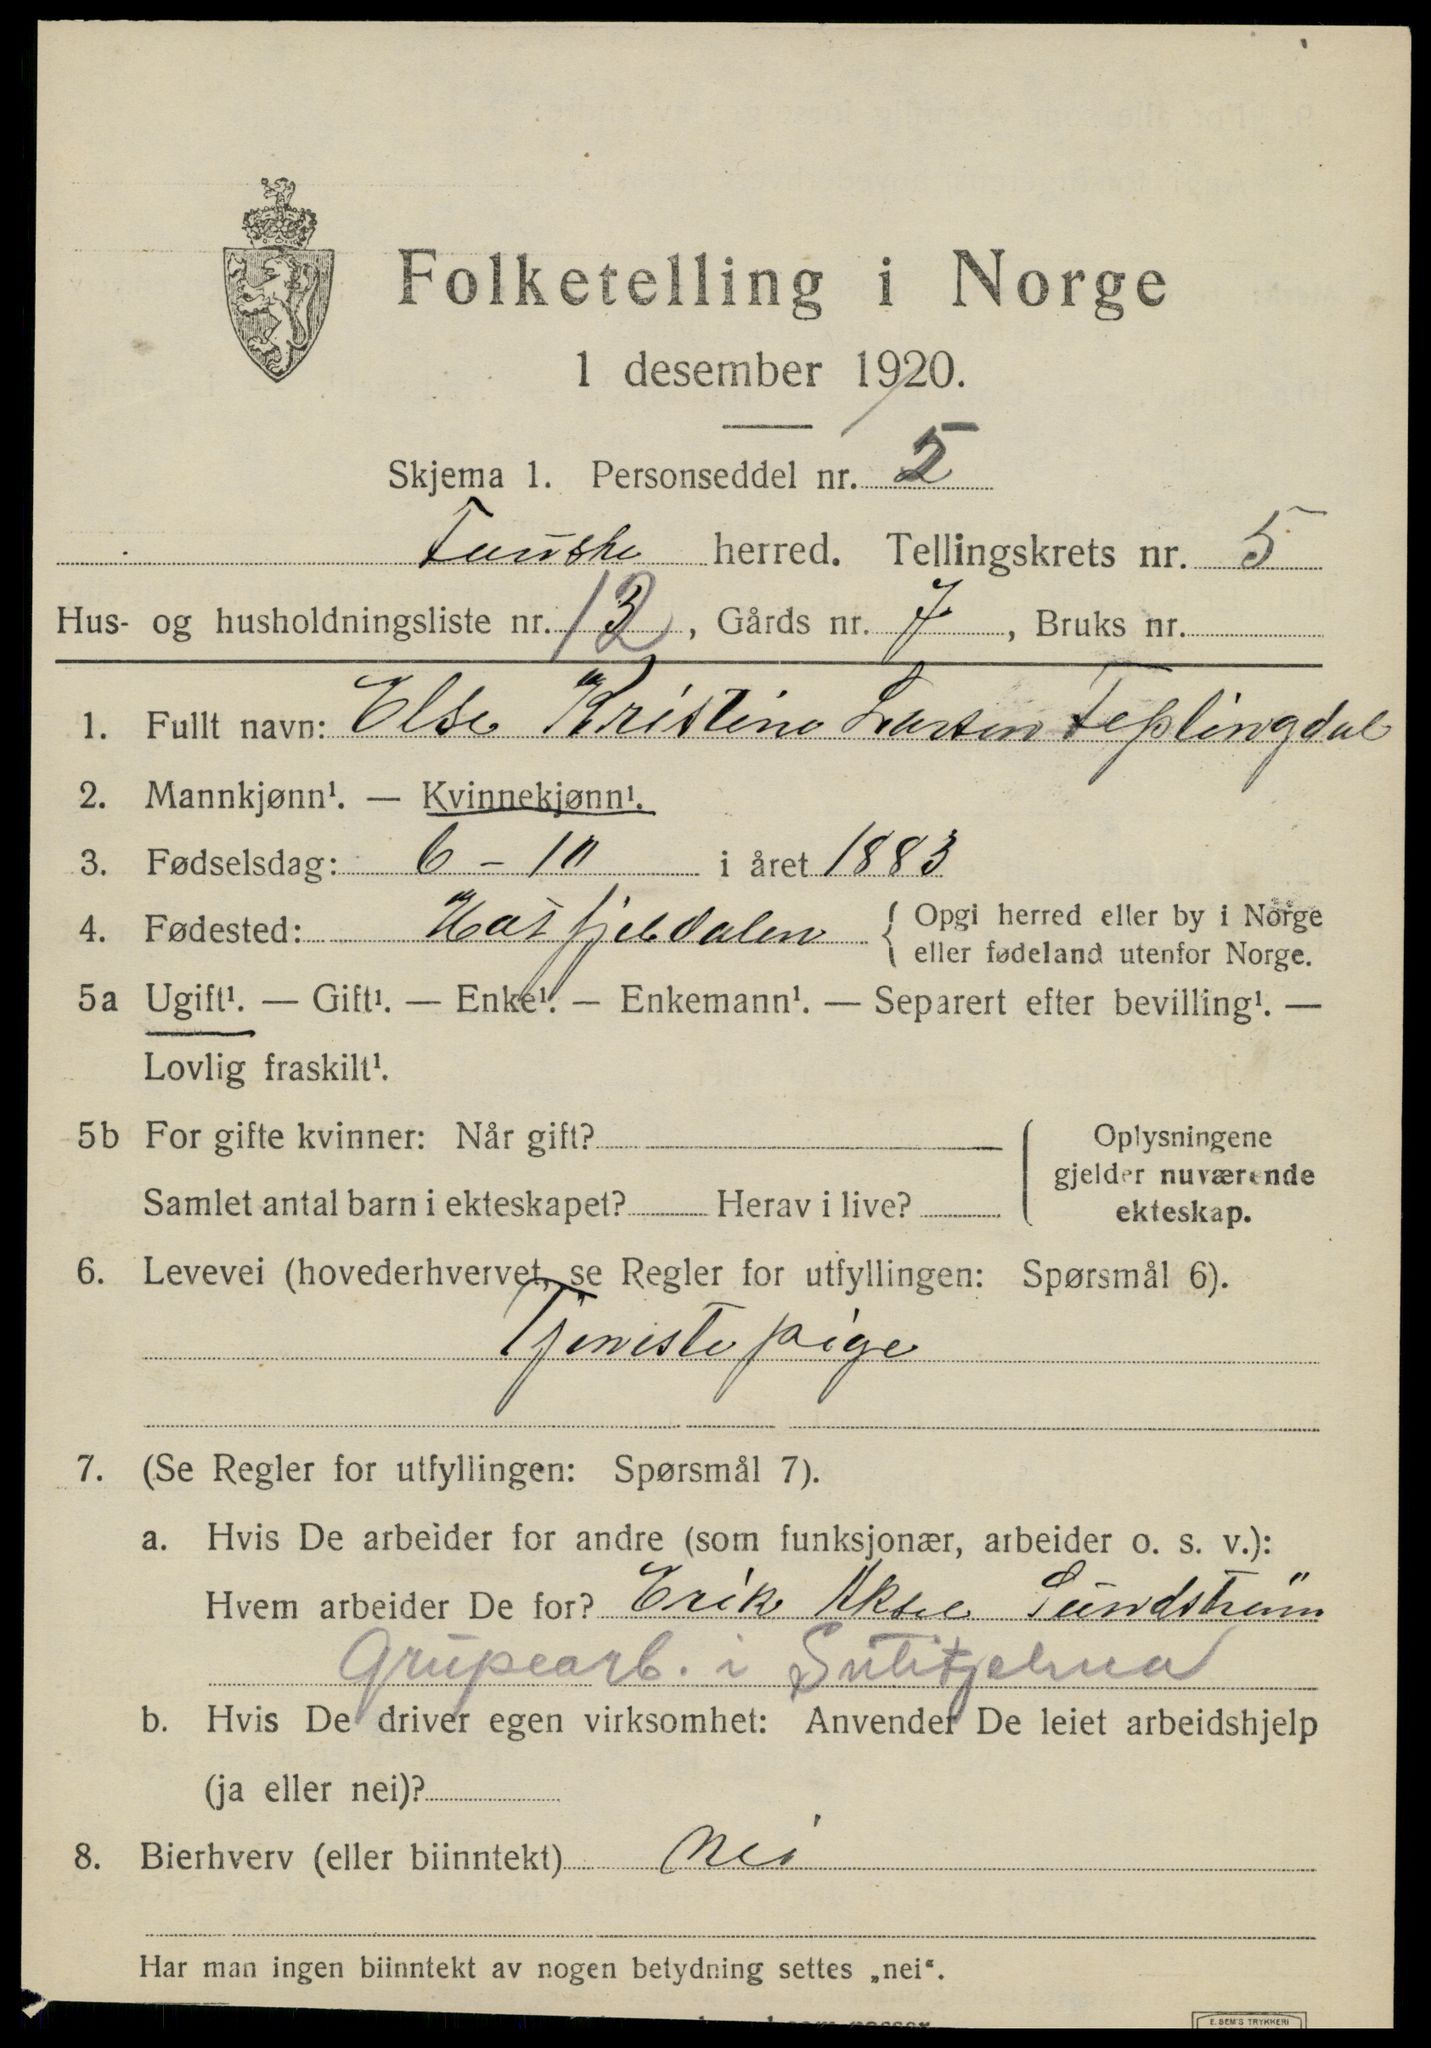 Folketelling i Norge
1 desember 1920.
Skjema 1. Personseddel nr. 5
Fauske herred. Tellingskrets nr. 5
Hus- og husholdningsliste nr. 12, Gårds nr. 7, Bruks nr.
1. Fullt navn: Else Kristine Larsen Teplingdal
2. Mannkjønn¹. — Kvinnekjønn¹.
3. Fødselsdag: 6 – 10 i året 1883
4. Fødested: Hatfjeldalen { Opgi herred eller by i Norge
eller fødeland utenfor Norge.
5a Ugift¹. — Gift¹. — Enke¹. — Enkemann¹. — Separert efter bevilling¹. —
Lovlig fraskilt¹.
5b For gifte kvinner: Når gift?
Samlet antal barn i ekteskapet? Herav i live?
Oplysningene
gjelder nuværende
ekteskap.
6. Levevei (hovederhvervet, se Regler for utfyllingen: Spørsmål 6).
Tjenistepige
7. (Se Regler for utfyllingen: Spørsmål 7).
a. Hvis De arbeider for andre (som funksjonær, arbeider o. s. v.):
Hvem arbeider De for? Erik Aksel Sundström
Grupearb. i Sulitjelma
b. Hvis De driver egen virksomhet: Anvender De leiet arbeidshjelp
(ja eller nei)?
8. Bierhverv (eller biinntekt) Nei
Har man ingen biinntekt av nogen betydning settes „nei“.
E. SEM'S TRYKKERI